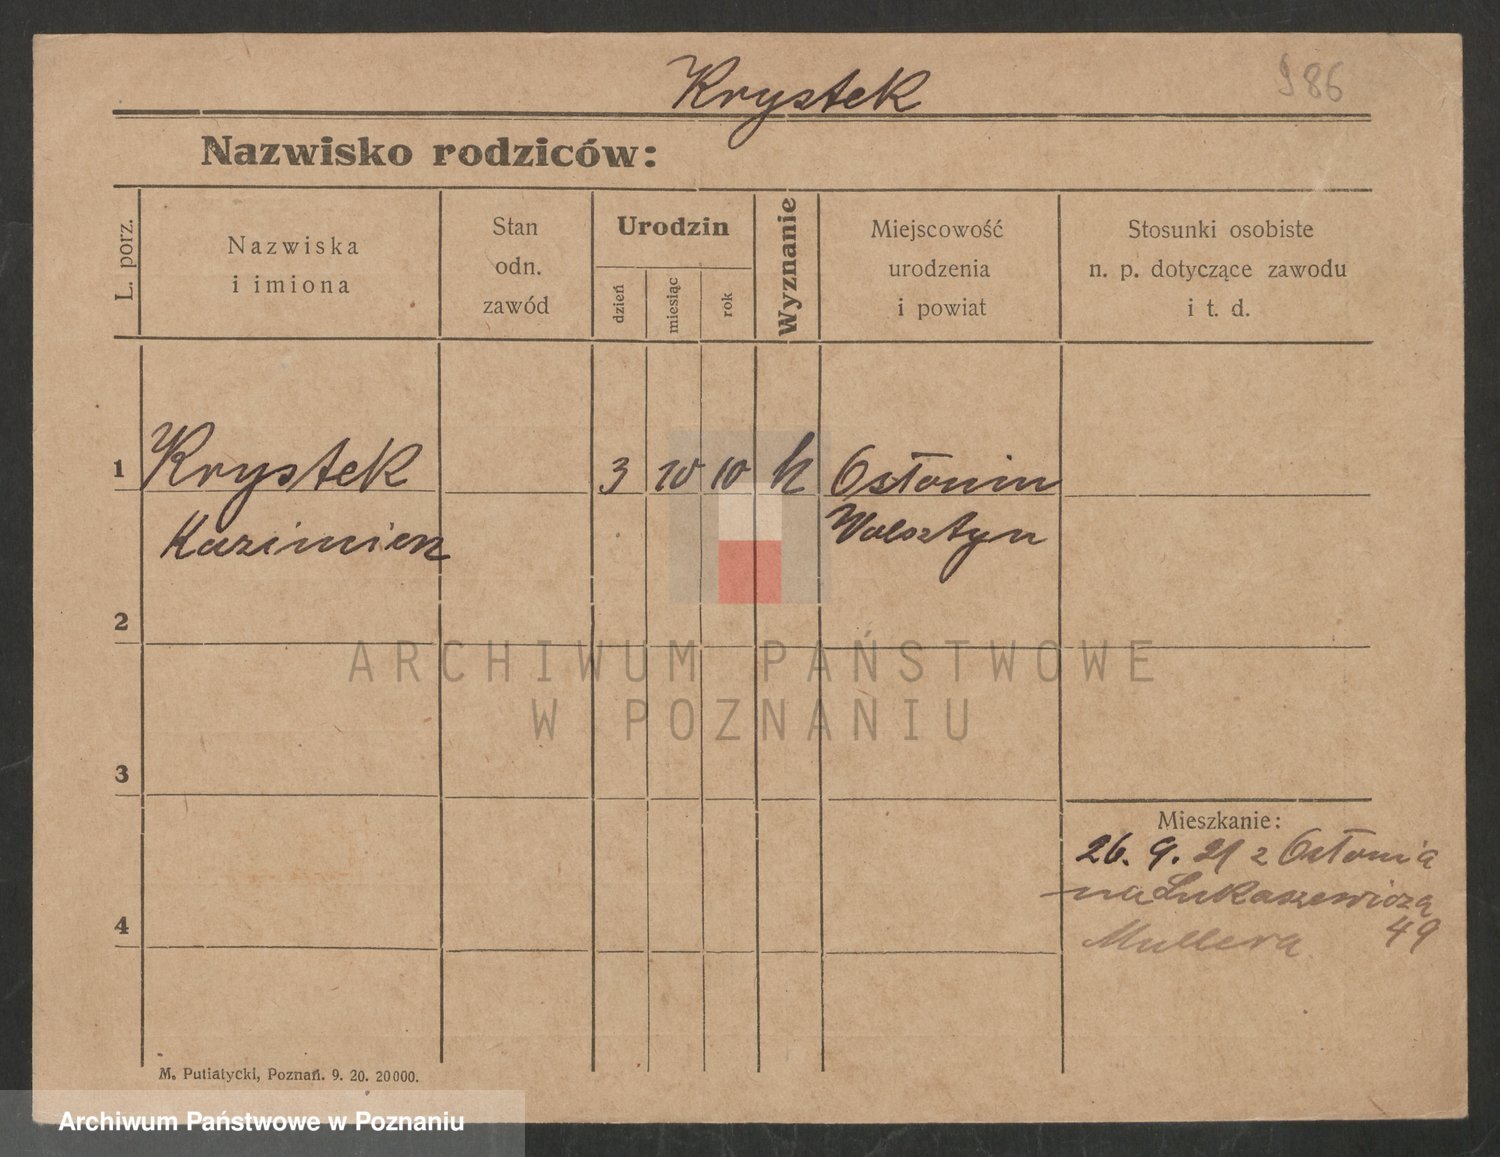 Krystek
986
Nazwisko rodziców:
L. porz.
Nazwiska
i imiona
Stan
odn.
zawód
Urodzin
dzień
miesiąc
rok
Wyznanie
Miejscowość
urodzenia
i powiat
Stosunki osobiste
n. p. dotyczące zawodu
i t. d.
1 Krystek 3 10 10 k Osłonin
Kazimierz Wolsztyn
2
ARCHIWUM PAŃSTWOWE
W POZNANIU
3
Mieszkanie:
26. 9. 21 z Osłonia
na Lukaszewicza
4 49
Mullera
M. Putiatycki, Poznań. 9. 20. 20000.
Archiwum Państwowe w Poznaniu